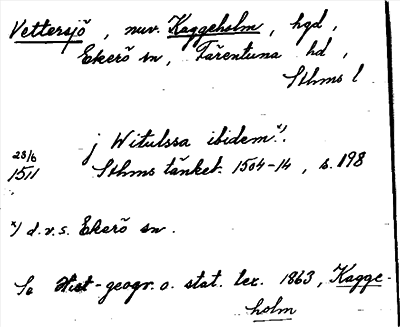 Vettersjö, nuv. Kaggeholm, hgd,
Ekerö sn, Färentuna hd,
Sthms l
j Witulssa ibidem x).
23/6
1511 Sthms tänkeb. 1504-14, s. 198
x) d.v.s. Ekerö sn.
Se Hist-geogr. o. stat. lex. 1863, Kagge-
holm